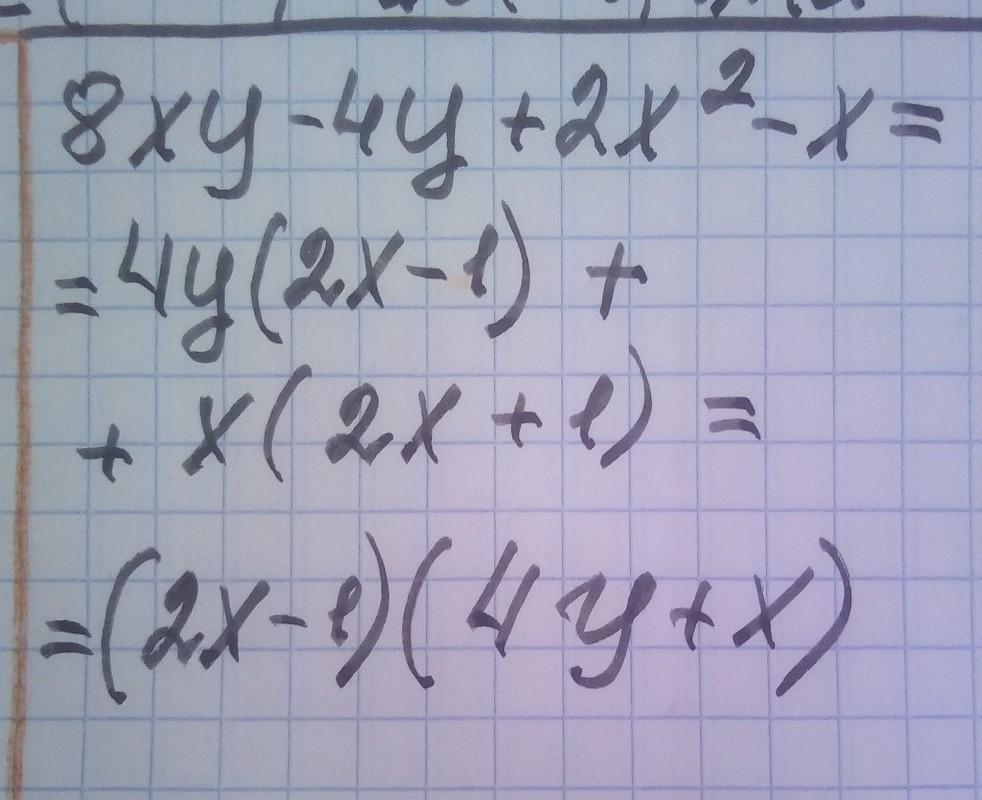 8xy-4y+2x²-x=
=4y(2x-1) +
+ x(2x+1) =
=(2x-1)(4y+x)